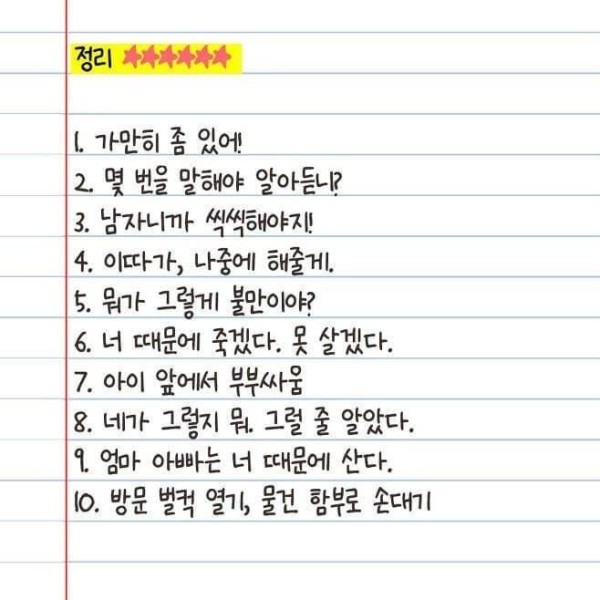 정리 ★★★★★★
1. 가만히 좀 있어!
2. 몇 번을 말해야 알아듣니?
3. 남자니까 씩씩해야지!
4. 이따가, 나중에 해줄게.
5. 뭐가 그렇게 불만이야?
6. 너 때문에 죽겠다. 못 살겠다.
7. 아이 앞에서 부부싸움
8. 네가 그렇지 뭐. 그럴 줄 알았다.
9. 엄마 아빠는 너 때문에 산다.
10. 방문 벌컥 열기, 물건 함부로 손대기